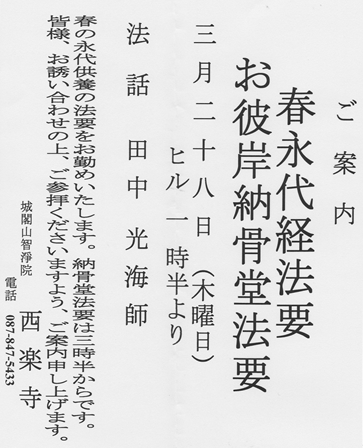 ご案内
春永代経法要
お彼岸納骨堂法要
三月二十八日（木曜日）
ヒル一時半より
法話　田中光海師
春の永代供養の法要をお勤めいたします。納骨堂法要は三時半からです。
皆様、お誘い合わせの上、ご参拝くださいますよう、ご案内申し上げます。
城閣山智浄院
西楽寺
電話 087-847-5433